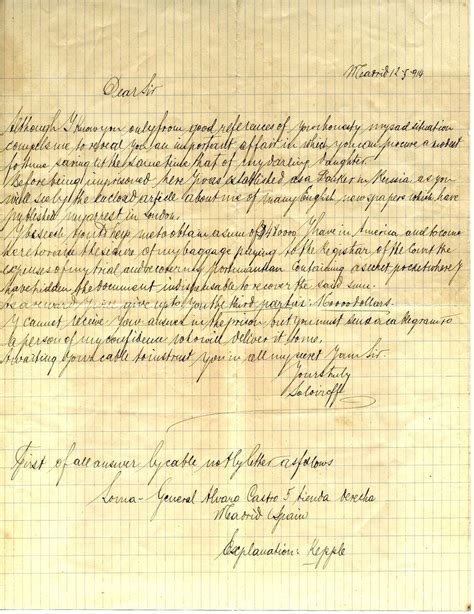 Madrid 12 5 914
Dear Sir
Although I know you only from good references of your honesty, my sad situation
compels me to reveal you an important affair in which you can procure a modest
fortune saving at the same time that of my darling daughter.
Before being imprisoned here I was established as a Banker in Russia as you
will see by the enclosed article about me of many English newspapers which have
published my arrest in London.
I beseech you to help me to obtain a sum of $ 480.000 I have in America and to come
here to raise the seizure of my baggage paying to the Registrar of the Court the
expenses of my trial and recover my portmanteau containing a secret pocket where I
have hidden the document indispensable to recover the said sum.
As a reward I will give up to you the third part viz: 160.000 dollars.
I cannot receive your answer in the prison but you must send a cablegram to
a person of my confidence who will deliver it to me.
Awaiting your cable to instruct you in all my secret. I am Sir
Yours truly
Soloiroff
First of all answer by cable not by letter as follows
Lorna - General Alvaro Castro 5 tienda derecha
Madrid Spain
Explanation: Kepple